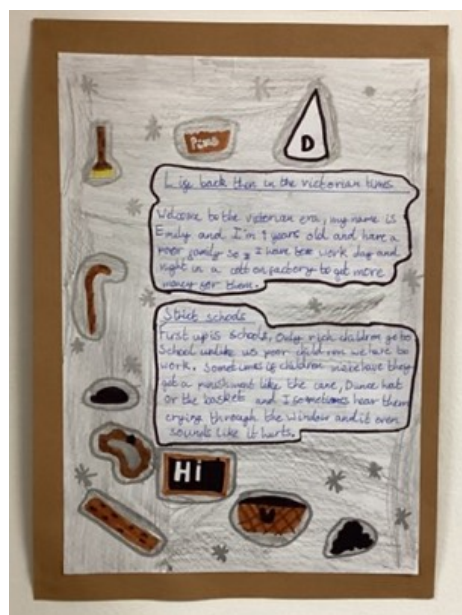 Pens
D
Life back then in the victorian times
Welcome to the victorian era, my name is
Emily and I'm 9 years old and have a
poor family so I have work day and
night in a cotton factory to get more
money for them.
Strict schools
First up is schools, Only rich children go to
School unlike us poor children we have to
work. Sometimes if children misbehave they
get a punishment like the cane, Dunce hat
or the baskets and I sometimes hear them
crying through the window and it even
sounds like it hurts.
Hi